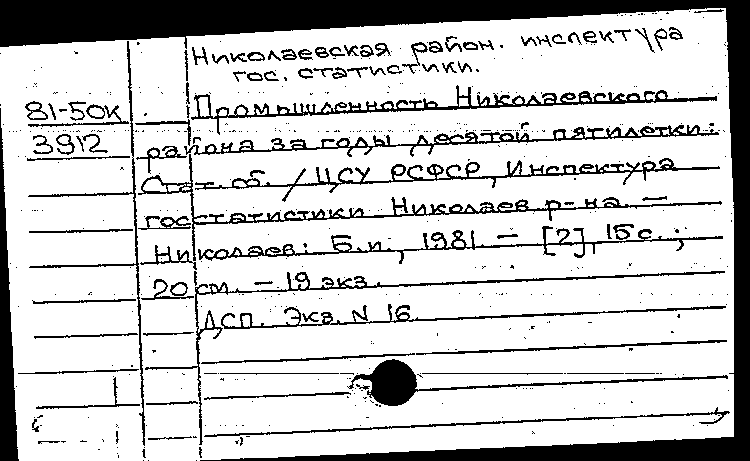 Николаевская район. инспектура
гос. статистики.
81-50к
3912
Промышленность Николаевского
района за годы десятой пятилетки:
Стат. сб. / ЦСУ РСФСР, Инспектура
госстатистики Николаев р-на. —
Николаев: Б.и., 1981. — [2], 15 с.;
20 см. — 19 экз.
ДСП. Экз. N 16